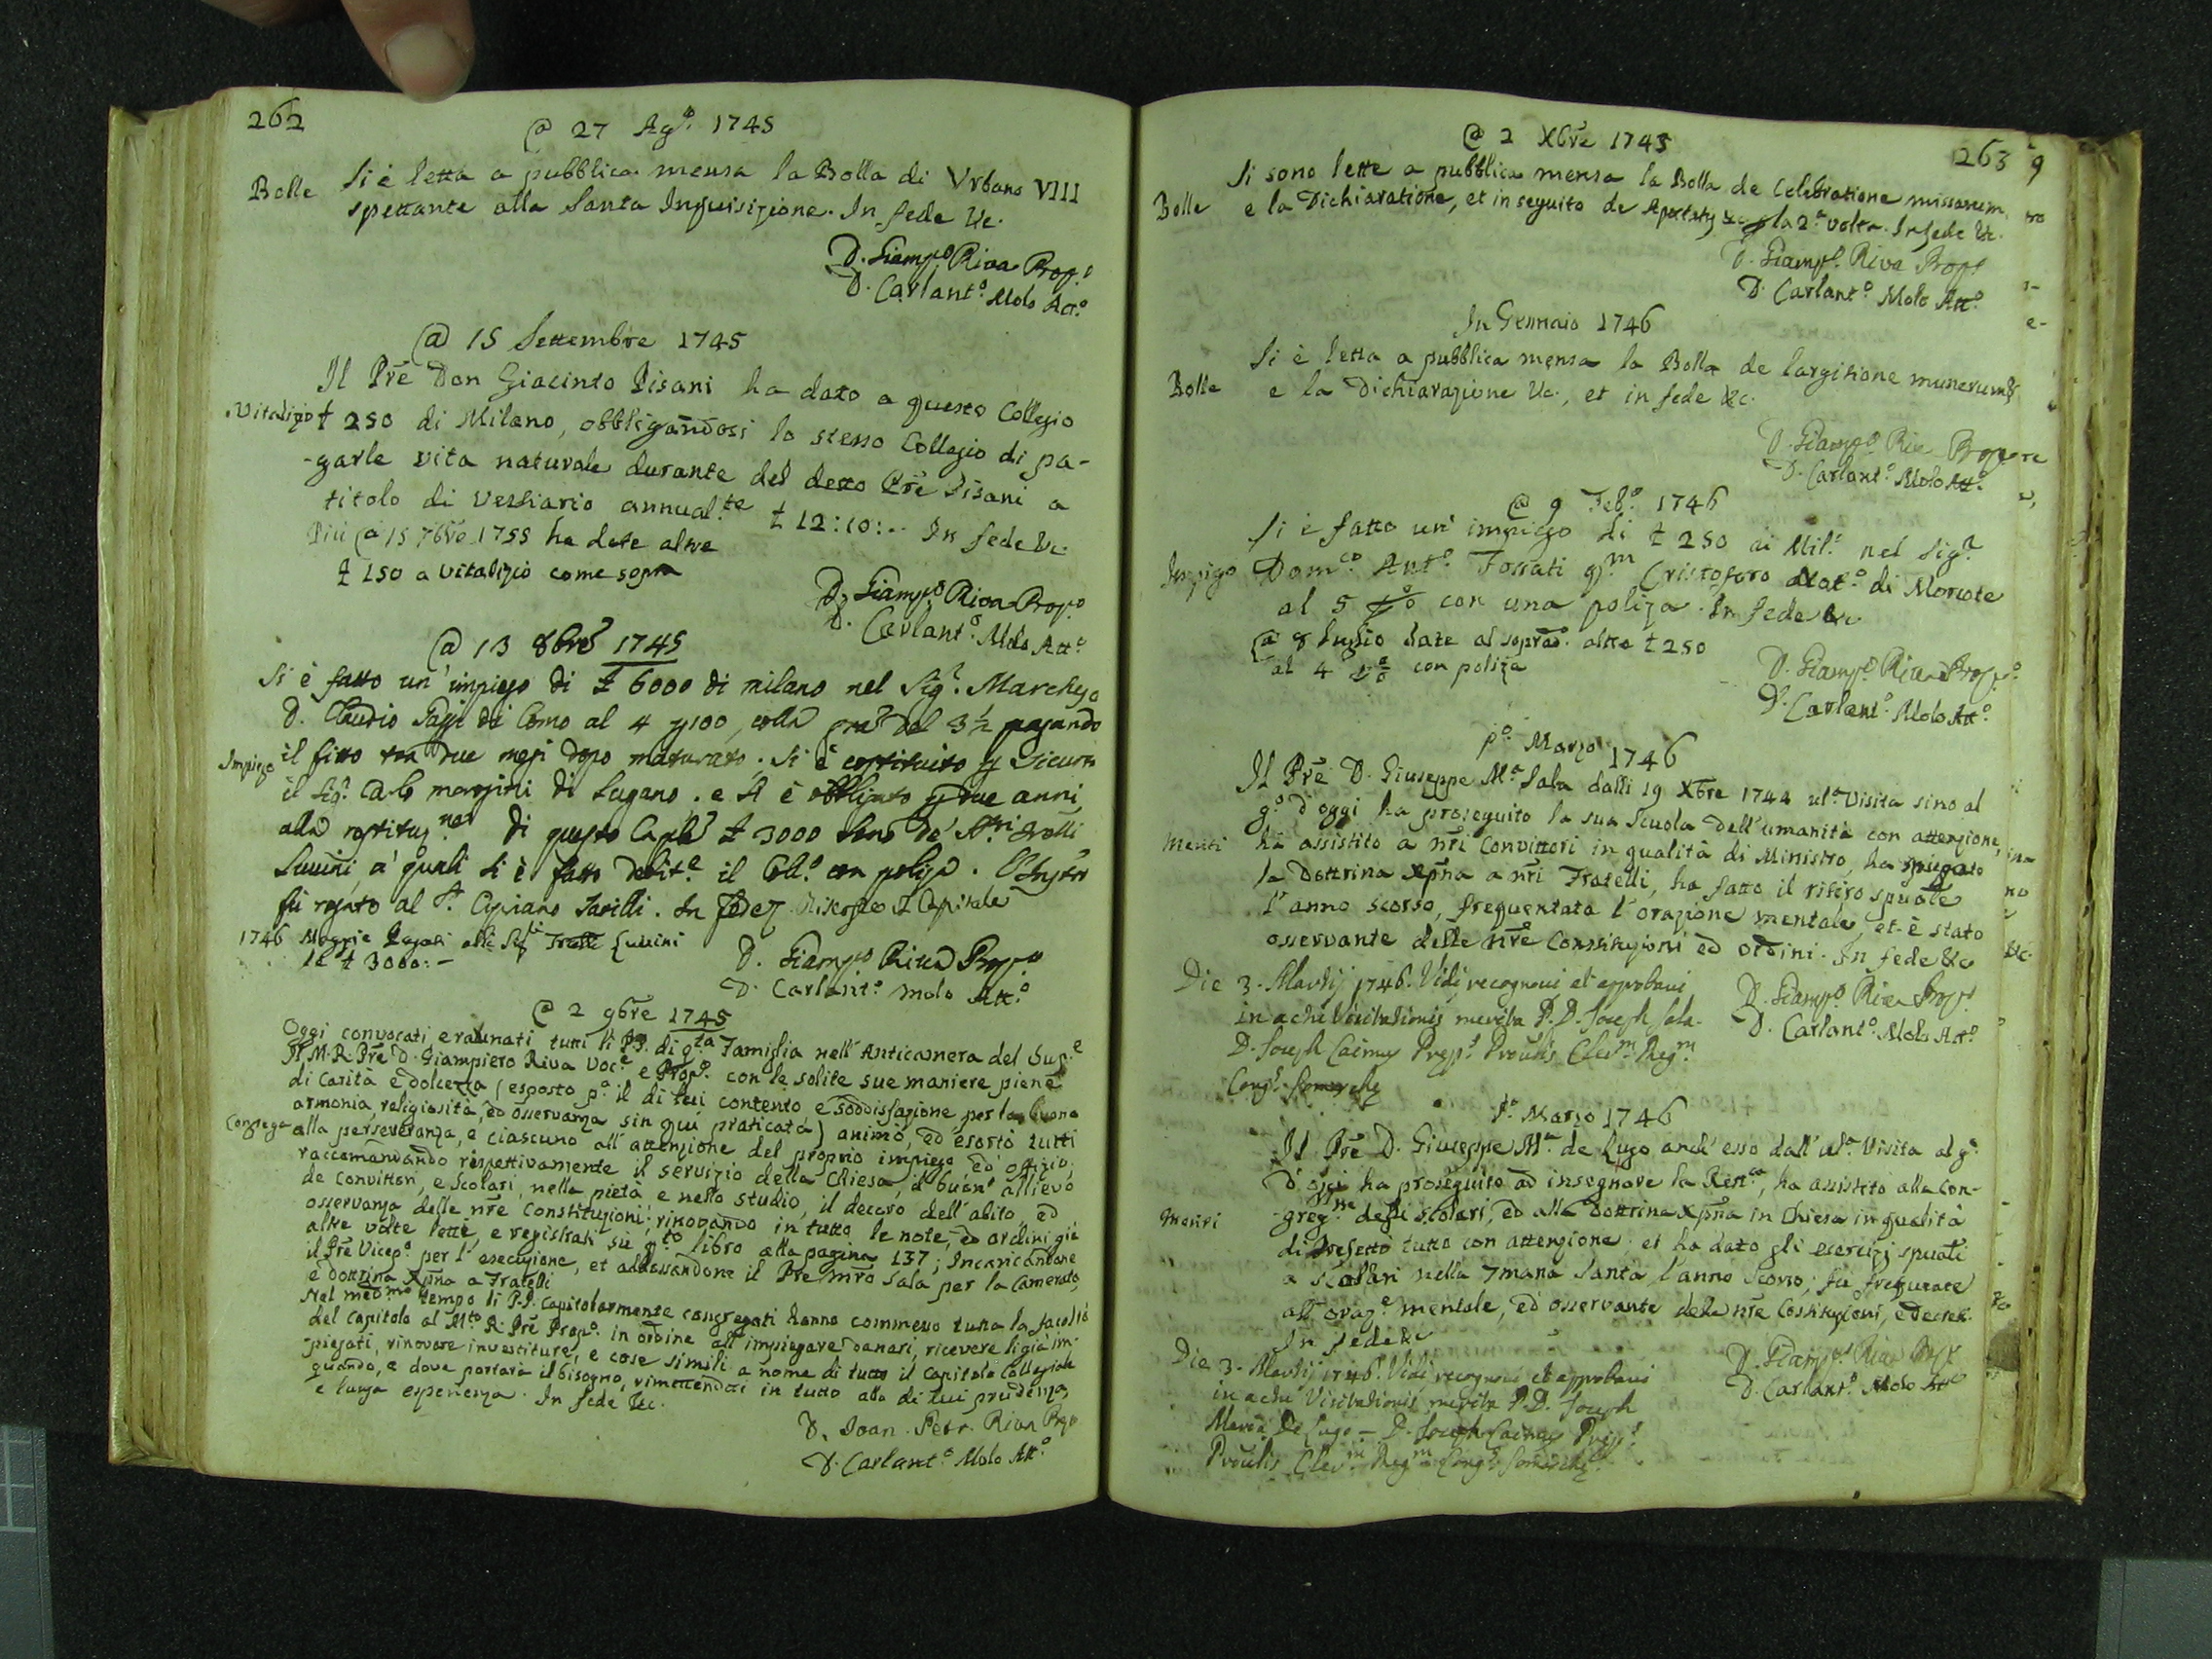 262
@ 27 Ag.º 1745
Bolle
Si è letta a pubblica mensa la Bolla di Vrbano VIII
spettante alla Santa Inquisizione. In fede &c.
D. Giamp.º Riva Prop.º
D. Carlant.º Molo Att.º
@ 15 Settembre 1745
Il Prẽ Don Giacinto Pisani ha dato a questo Collegio
Vitalizio
ƚ 250 di Milano, obbligandosi lo stesso Collegio di pa-
-garle vita naturale durante del detto Prẽ Pisani a
titolo di Vestiario annual.te ƚ 12:10:-. In fede &c.
Più @ 15 7bre 1755 ha date altre
ƚ 150 a vitalizio come sopra
D. Giamp.º Riva Prop.º
D. Carlant.º Molo Att.º
@ 13 8bre 1745
Si è fatto un' impiego di ƚ 6000 di milano nel Sig.r Marchese
D. Claudio di Como al 4 p 100, colla del 3½ pagando
Impiego
il fitto tra due mesi dopo maturato. Si è costituito p sicurtà
il Sig.r Carlo di Lugano. e si è obbligato p due anni,
alla restituz.ne di questo ƚ 3000 sono de' Frãlli
Luvini, a' quali si è fatto il Coll.º con poliza.
fù rogato al S.r Cipriano . In fede
1746 Maggio Pagati alli Sig.ri Fratelli Luvini
le ƚ 3000:-
D. Giamp.º Riva Prop.º
D. Carlant.º Molo Att.º
@ 2 9bre 1745
Oggi convocati e radunati tutti li PP. di q.ta Famiglia nell' Anticamera del Sup.e
Il M. R. Prẽ D. Giampiero Riva Voc.e e Prop.º con le solite sue maniere piene
di Carità e dolcezza (esposto p.ª il di lui contento e soddisfazione per la buona
armonia, religiosità, ed osservanza sin qui praticata) animò, ed esortò tutti
Congrega
alla perseveranza, e ciascuno all' attenzione del proprio impiego ed offizio,
raccomandando rispettivamente il servizio della Chiesa, il buon' allievo
de Convittori, e Scolari, nella pietà e nello studio, il decoro dell' abito, ed
osservanza delle nrẽ Constituzioni; rinovando in tutto le note, ed ordini già
altre volte lette, e registrati su q.to libro alla pagina 137; Incaricandone
il Prẽ Vicep.º per l' esecuzione, et addossandone il Prẽ mrõ Sala per la Camerata,
e dottrina Xpña a Fratelli
Nel med.mo tempo li P.P. Capitolarmente congregati hanno commesso tutta la facoltà
del Capitolo al M.to R. Prẽ Prop.º in ordine all' impiegare danari, ricevere li già im-
-piegati, rinovare investiture, e cose simili a nome di tutto il Capitolo Collegiale
quando, e dove portarà il bisogno, rimettendosi in tutto alla di lui prudenza,
e lunga esperienza. In fede &c.
D. Joan. Petr. Riva Prop.
D. Carlant.º Molo Att.º
263
@ 2 Xbre 1745
Si sono lette a pubblica mensa la Bolla de Celebratione missarum
Bolle
e la Dichiaratione, et in seguito de Apostatis &c. p la 2.ª volta. In fede &c.
D. Giamp.º Riva Prop.
D. Carlant.º Molo Att.º
In Gennaio 1746
Si è letta a pubblica mensa la Bolla de largitione munerum &
Bolle
e la Dichiarazione &c., et in fede &c.
D. Giamp.º Riva Prop.
D. Carlant.º Molo Att.º
@ 9 Feb.º 1746
Si è fatto un' impiego di ƚ 250 di Mil.º nel Sig.r
Impiego
Dom.co Ant.º Fossati q.m Cristoforo di Morcote
al 5 p%º con una poliza. In fede &c.
@ 8 Luglio date al soprad.º altre ƚ 250
al 4 ½ con poliza
D. Giamp.º Riva Prop.º
D. Carlant.º Molo Att.º
p.º Marzo 1746
Il Prẽ D. Giuseppe M.ª Sala dalli 19 Xbre 1744 ul.ª Visita sino al
g.º d' oggi ha proseguito la sua Scuola dell' umanità con attenzione,
Meriti
ha assistito a nrĩ Convittori in qualità di Ministro, ha spiegato
la dottrina Xpña a nrĩ Fratelli, ha fatto il ritiro spuale
l' anno scorso, frequentata l' orazione mentale, et è stato
osservante delle nrẽ Constituzioni ed ordini. In fede &c.
Die 3. Martij 1746. Vidi, recognovi et approbavi
in actu Visitationis merita P. D. Joseph Sala.
D. Joseph Caimus Prep.s Provlis Cler.m Reg.m
Cong.s Somasche
D. Giamp.º Riva Prop.
D. Carlant.º Molo Att.º
p.º Marzo 1746
Il Prẽ D. Giuseppe M.ª de Lugo anch' esso dall' ul.ª Visita al g.º
d' oggi ha proseguito ad insegnare la Rett.ca, ha assistito alla Con-
Meriti
-greg.ne degli Scolari, ed alla dottrina Xpña in Chiesa in qualità
di Prefetto tutto con attenzione, et ha dato gli esercizj spuali
a scolari nella 7mana Santa l' anno scorso; fù frequente
all' oraz.e mentale, ed osservante delle nrẽ Costituzioni, e Decreti.
In fede &c
Die 3. Martij 1746. Vidi, recognovi et approbavi
in actu Visitationis merita P. D. Joseph
Maria De Lugo - D. Joseph Caimus Prep.s
Provlis Cler.m Reg.m Cong.s Somasche
D. Giamp.º Riva Prop.
D. Carlant.º Molo Att.º